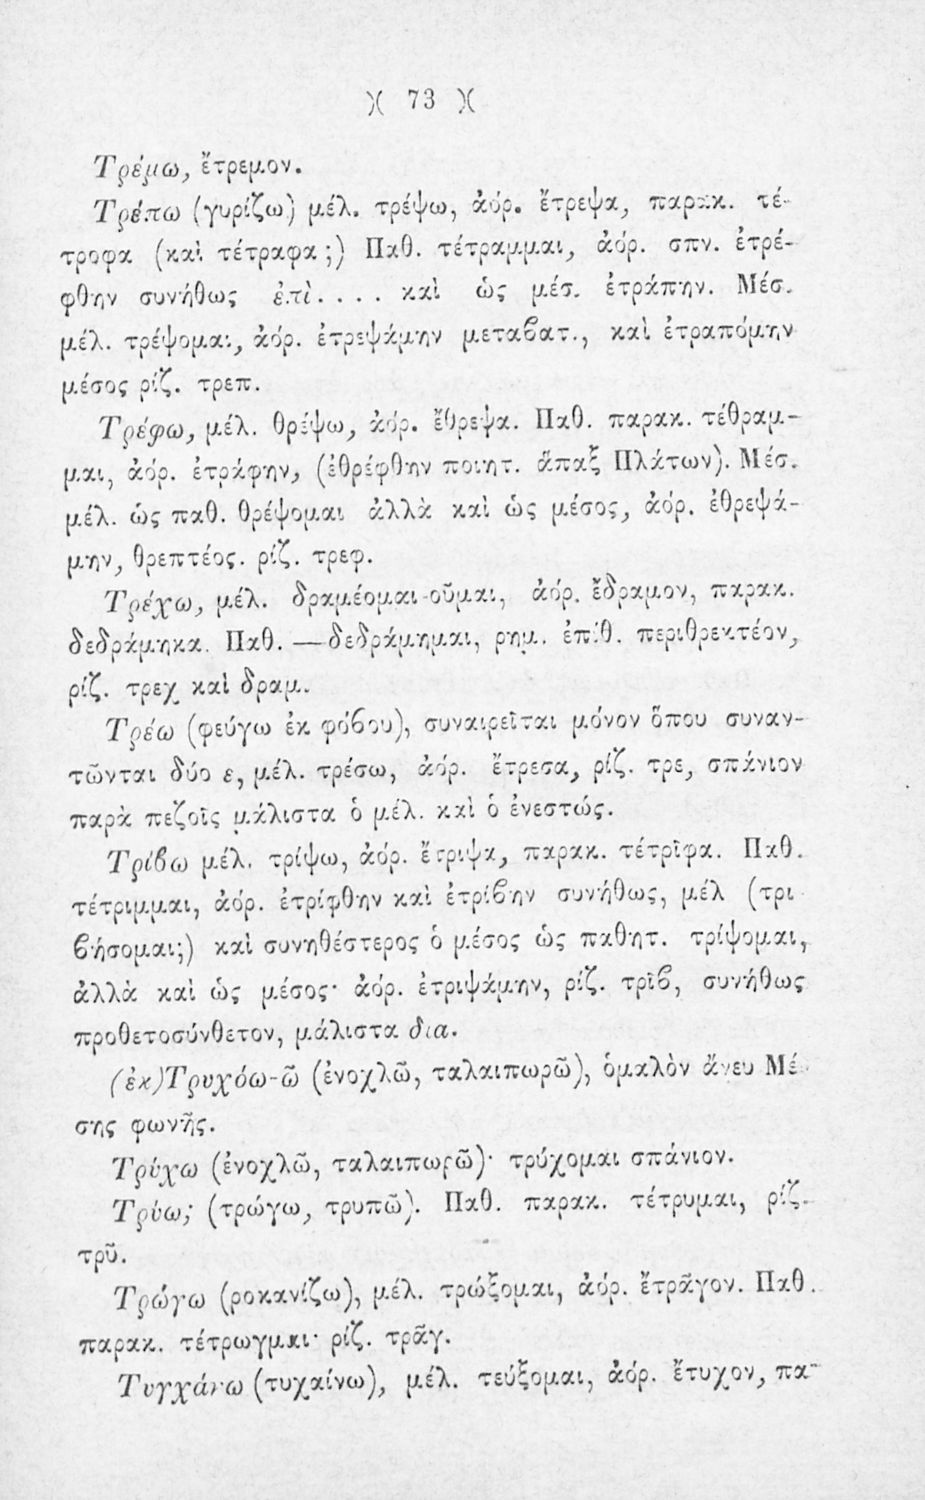 )( 73 )(
Τρέμω, ἔτρεμον.
Τρέπω (γυρίζω) μέλ. τρέψω, ἀόρ. ἔτρεψα, παρακ. τέ-
τροφα (καὶ τέτραφα;) Παθ. τέτραμμαι, ἀόρ. σπν. ἐτρέ-
φθην συνήθως ἐπὶ.... καὶ ὡς μέσ. ἐτράπην. Μέσ.
μέλ. τρέψομαι, ἀόρ. ἐτρεψάμην μεταϐατ., καὶ ἐτραπόμην
μέσος ρίζ. τρεπ.
Τρέφω, μέλ. θρέψω, ἀόρ. ἔθρεψα. Παθ. παρακ. τέθραμ-
μαι, ἀόρ. ἐτράφην, (ἐθρέφθην ποιητ. ἅπαξ Πλάτων). Μέσ.
μέλ. ὡς παθ. θρέψομαι ἀλλὰ καὶ ὡς μέσος, ἀόρ. ἐθρεψά-
μην, θρεπτέος. ρίζ. τρεφ.
Τρέχω, μέλ. δραμέομαι-οῦμαι, ἀόρ. ἔδραμον, παρακ.
δεδράμηκα. Παθ. —δεδράμημαι, ρημ. ἐπίθ. περιθρεκτέον,
ρίζ. τρεχ καὶ δραμ.
Τρέω (φεύγω ἐκ φόϐου), συναιρεῖται μόνον ὅπου συναν-
τῶνται δύο ε, μέλ. τρέσω, ἀόρ. ἔτρεσα, ρίζ. τρε, σπάνιον
παρὰ πεζοῖς μάλιστα ὁ μέλ. καὶ ὁ ἐνεστώς.
Τρίϐω μέλ. τρίψω, ἀόρ. ἔτριψα, παρακ. τέτρῐφα. Παθ.
τέτριμμαι, ἀόρ. ἐτρίφθην καὶ ἐτρίϐην συνήθως, μέλ (τρι
ϐήσομαι;) καὶ συνηθέστερος ὁ μέσος ὡς παθητ. τρίψομαι,
ἀλλὰ καὶ ὡς μέσος· ἀόρ. ἐτριψάμην, ρίζ. τρῐϐ, συνήθως
προθετοσύνθετον, μάλιστα δια.
(ἐκ)Τρυχόω-ῶ (ἐνοχλῶ, ταλαιπωρῶ), ὁμαλὸν ἄνευ Μέ-
σης φωνῆς.
Τρύχω (ἐνοχλῶ, ταλαιπωρῶ)· τρύχομαι σπάνιον.
Τρύω; (τρώγω, τρυπῶ). Παθ. παρακ. τέτρυμαι, ρίζ.
τρῦ.
Τρώγω (ροκανίζω), μέλ. τρώξομαι, ἀόρ. ἔτρᾶγον. Παθ.
παρακ. τέτρωγμαι· ρίζ. τρᾶγ.
Τυγχάνω (τυχαίνω), μέλ. τεύξομαι, ἀόρ. ἔτυχον, πα-